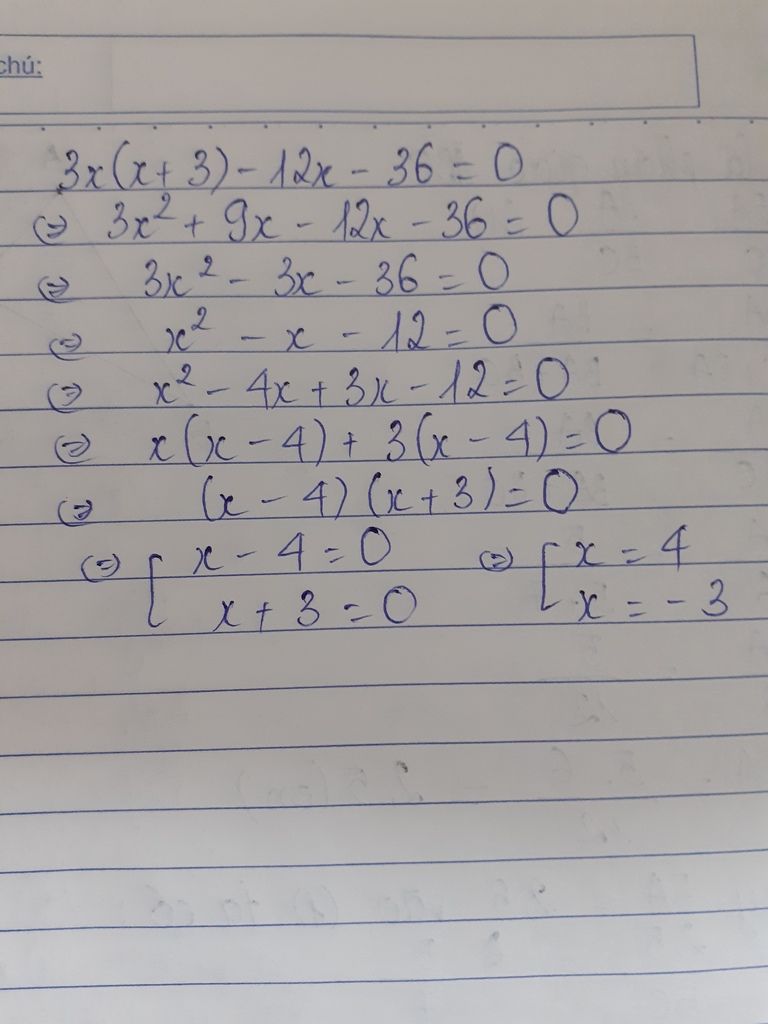 chú:
3x(x+3) - 12x - 36 = 0
⇔ 3x² + 9x - 12x - 36 = 0
⇔ 3x² - 3x - 36 = 0
⇔ x² - x - 12 = 0
⇔ x² - 4x + 3x - 12 = 0
⇔ x(x - 4) + 3(x - 4) = 0
⇔ (x - 4)(x + 3) = 0
⇔ [ x - 4 = 0 ⇔ [ x = 4
x + 3 = 0 x = -3